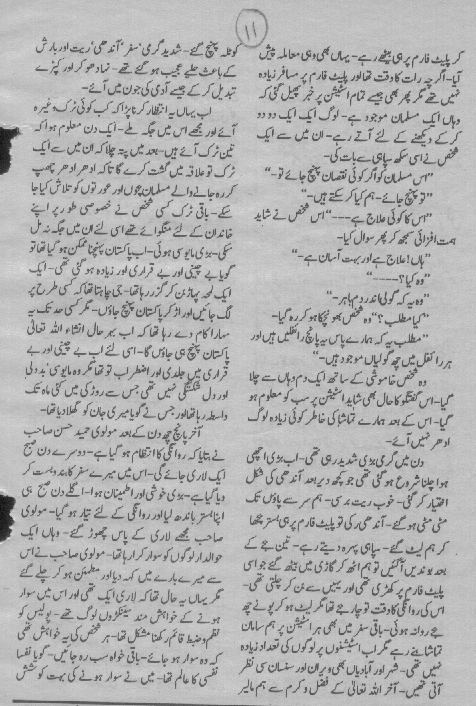 ۱۱
کر پلیٹ فارم پر ہی بیٹھے رہے۔ یہاں بھی وہی معاملہ پیش
آیا۔ اگرچہ رات کا وقت تھا اور پلیٹ فارم پر مسافر زیادہ
نہیں تھے مگر پھر بھی جیسے تمام اسٹیشن پر خبر پھیل گئی کہ
وہاں ایک مسلمان موجود ہے۔ لوگ ایک ایک دو دو
کر کے دیکھنے کے لئے آتے رہے۔ ان میں سے ایک
شخص نے اسی سکھ سپاہی سے بات کی۔
"اس مسلمان کو اگر کوئی نقصان پہنچ جائے تو۔"
"تو پہنچ جائے۔ ہم کیا کر سکتے ہیں۔"
"اس کا کوئی علاج ہے ---" اس شخص نے شاید
ہمت افزائی سمجھ کر پھر سوال کیا۔
"ہاں! علاج ہے اور بہت آسان ہے۔"
"وہ کیا؟ ----"
"وہ یہ کہ گولی اندر دم باہر۔"
"کیا مطلب؟" وہ شخص بھونچکا ہو کر رہ گیا۔
"مطلب یہ کہ ہمارے پاس یہ پانچ رائفلیں ہیں اور
ہر رائفل میں چھ گولیاں موجود ہیں۔"
وہ شخص خاموشی کے ساتھ ایک دم وہاں سے چلا
گیا۔ اس گفتگو کا حال بھی شاید اسٹیشن پر سب کو معلوم ہو
گیا۔ اس کے بعد ہمارے تماشا کی خاطر کوئی زیادہ لوگ
ادھر نہیں آئے۔
دن میں گرمی بڑی شدید رہی تھی۔ اب بڑی اچھی
ہوا چلنا شروع ہو گئی تھی جو کچھ دیر بعد آندھی کی شکل
اختیار کر گئی۔ خوب ریت برسی۔ ہم سر سے پاؤں تک
مٹی مٹی ہو گئے۔ آندھی رکی تو پلیٹ فارم پر ہی بستر بچھا
کر ہم لیٹ گئے۔ سپاہی پہرہ دیتے رہے۔ تین بجے کے
بعد بوندیں آ گئیں تو ہم اٹھ کر گاڑی میں بیٹھ گئے جو اسی
پلیٹ فارم پر کھڑی تھی اور یہیں سے بن کر چلتی تھی۔
اس کی روانگی کا وقت تو چار بجے تھا مگر لیٹ ہو کر پونے چھ
بجے روانہ ہوئی۔ باقی سفر میں بھی ہر اسٹیشن پر ہم سامان
تماشا بنے رہے مگر اب اسٹیشنوں پر لوگوں کی تعداد زیادہ
نہیں تھی۔ شہر اور آبادیاں بھی ویران اور سنسان سی نظر
آتی تھیں۔ آخر اللہ تعالیٰ کے فضل و کرم سے ہم مالیر
کوٹلہ پہنچ گئے۔ شدید گرمی' سفر' آندھی' ریت اور بارش
کے باعث حلیے عجیب ہو گئے تھے۔ نہا دھو کر اور کپڑے
تبدیل کر کے جیسے آدمی کی جون میں آئے۔
اب یہاں یہ انتظار کرنا پڑا کہ کب کوئی ٹرک وغیرہ
آئے اور مجھے اس میں جگہ ملے۔ ایک دن معلوم ہوا کہ
تین ٹرک آئے ہیں۔ بعد میں پتہ چلا کہ ان میں سے ایک
ٹرک تو علاقہ میں گشت کرے گا تاکہ ادھر ادھر چھپ
کر رہ جانے والے مسلمان بچوں اور عورتوں کو تلاش کیا جا
سکے۔ باقی ٹرک کسی شخص نے خصوصی طور پر اپنے
خاندان کے لئے منگوائے تھے اس لئے ان میں جگہ نہ مل
سکی۔ بڑی مایوسی ہوئی۔ اب پاکستان پہنچنا ممکن ہو گیا تھا تو
گویا بے چینی اور بے قراری اور زیادہ ہو گئی تھی۔ ایک
ایک لمحہ پہاڑ بن کر گزر رہا تھا۔ جی چاہتا تھا کہ کسی طرح پر
لگ جائیں اور اڑ کر پاکستان پہنچ جاؤں۔ مگر کسی حد تک یہ
سہارا کام دے رہا تھا کہ اب بہرحال انشاء اللہ تعالیٰ
پاکستان پہنچ ہی جاؤں گا۔ اسی لئے اب بے چینی اور بے
قراری میں جلدی اور اضطراب تو تھا مگر وہ مایوسی' بددلی
اور دل شکستگی نہیں تھی جس سے روڑکی میں کئی ماہ تک
واسطہ رہا تھا اور جس نے گویا میری جان کو گھلا دیا تھا۔
آخر پانچ چھ دن کے بعد مولوی حمید حسن صاحب
نے بتایا کہ روانگی کا انتظام ہو گیا ہے۔ دوسرے دن صبح
ایک لاری جائے گی۔ اس میں میرے سفر کا بندوبست کر
دیا گیا ہے۔ بڑی خوشی اور اطمینان ہوا۔ اگلے دن صبح ہی
اپنا بستر باندھ لیا اور روانگی کے لئے تیار ہو گیا۔ مولوی
صاحب مجھے لاری کے پاس چھوڑ گئے۔ وہاں ایک
حوالدار لوگوں کو سوار کرا رہا تھا۔ مولوی صاحب نے اس
سے میرے بارے میں کہہ دیا اور مطمئن ہو کر چلے گئے
مگر یہاں یہ حال تھا کہ ایک لاری تھی اور اس میں سوار
ہونے کے خواہش مند سینکڑوں لوگ تھے۔ پولیس کو
نظم و ضبط قائم رکھنا مشکل تھا۔ ہر شخص کی یہ خواہش تھی
کہ وہ سوار ہو جائے۔ باقی خواہ سب رہ جائیں۔ گویا نفسا
نفسی کا عالم تھا۔ میں نے سوار ہونے کی بہت کوشش